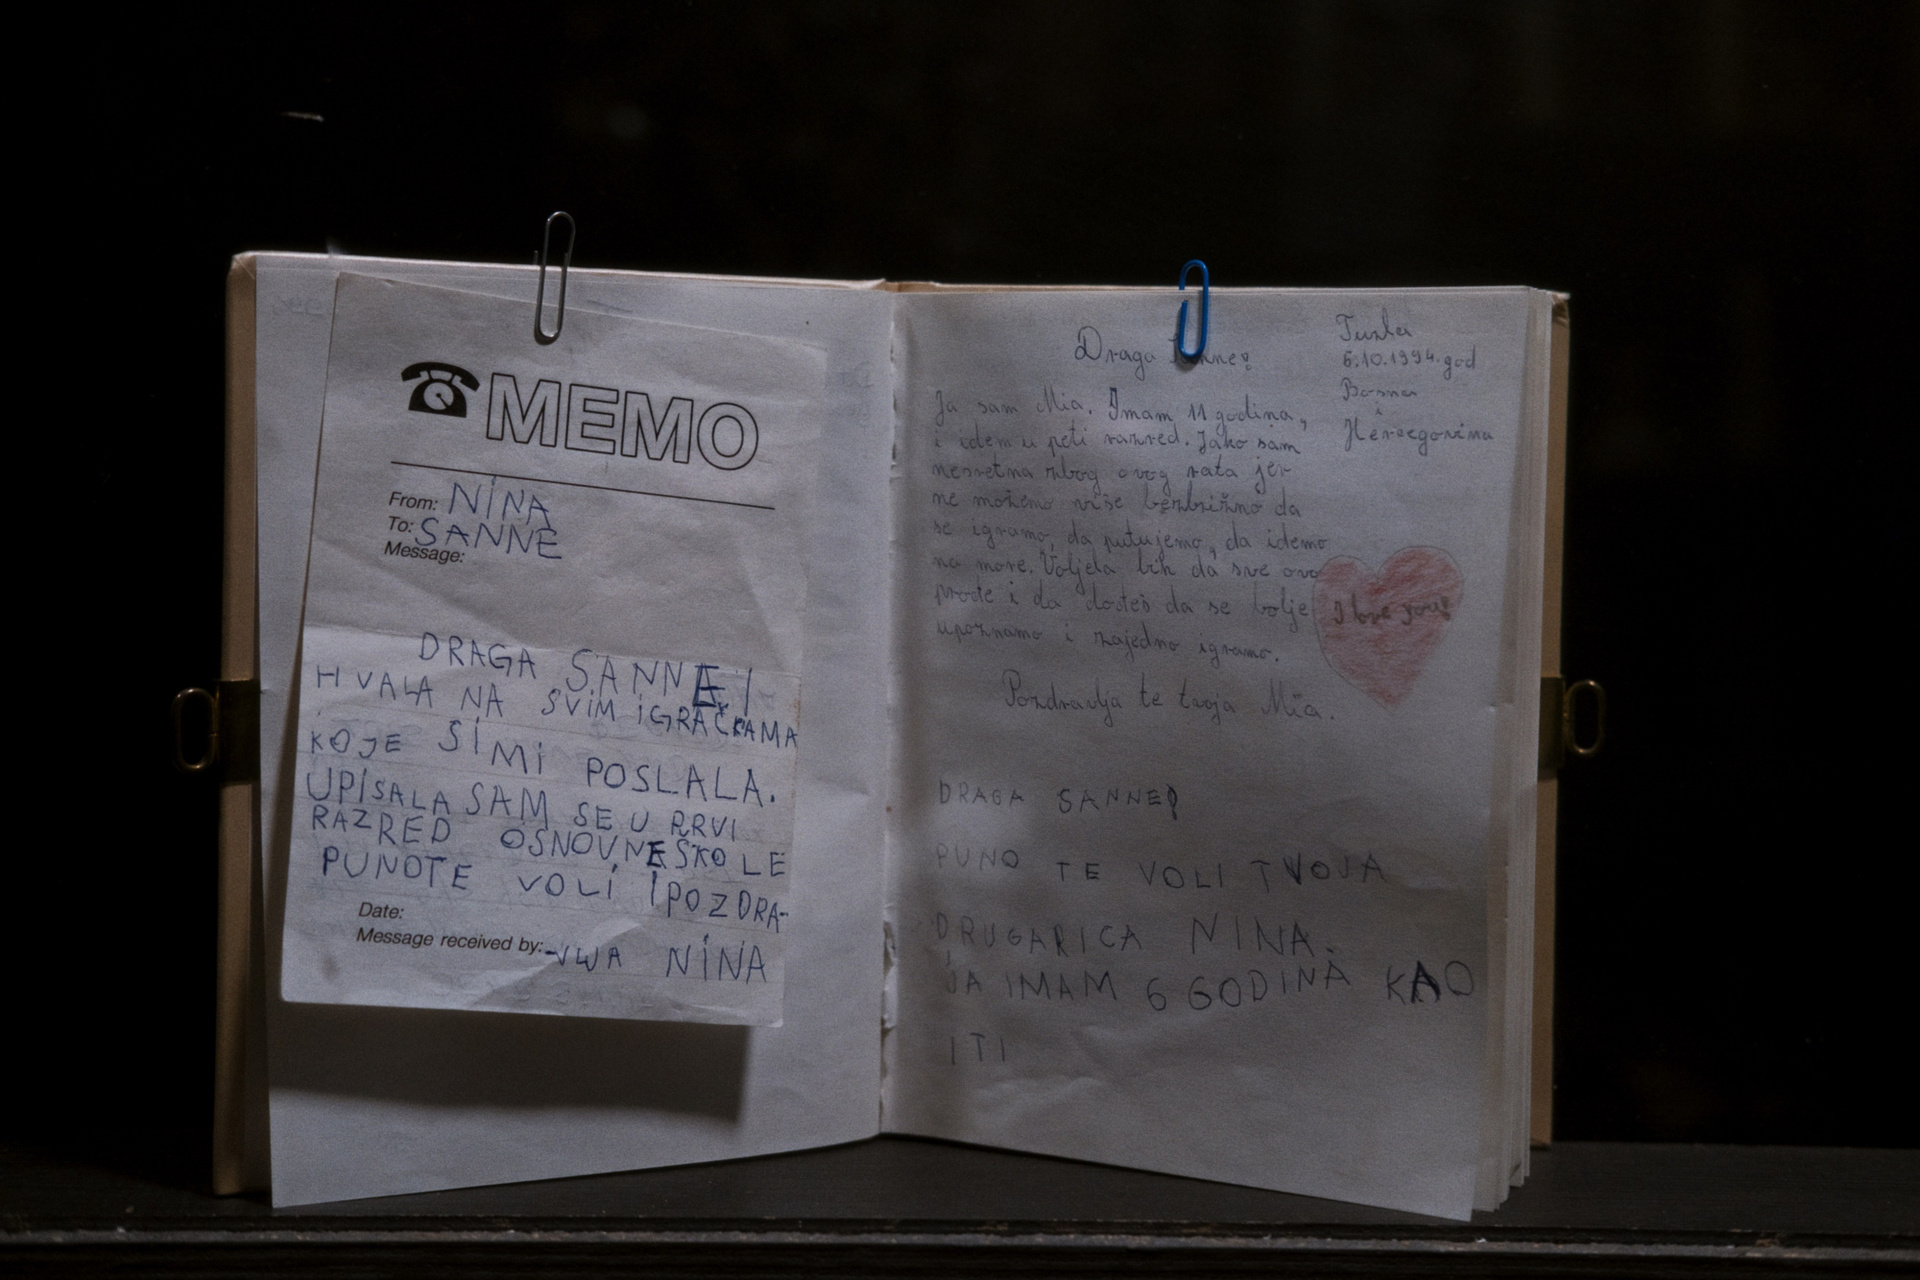 MEMO
From: NINA
To: SANNE
Message:
DRAGA SANNE!
HVALA NA SVIM IGRAČKAMA
KOJE SI MI POSLALA.
UPISALA SAM SE U PRVI
RAZRED OSNOVNE ŠKOLE
PUNO TE VOLI I POZDRA-
Date:
Message received by: -VLJA NINA
Tuzla
6.10.1994.god
Bosna
i
Hercegovina
Draga Sanne!
Ja sam Mia. Imam 11 godina,
i idem u peti razred. Jako sam
nesretna zbog ovog rata jer
ne možemo više bezbrižno da
se igramo, da putujemo, da idemo
na more. Voljela bih da sve ovo
prođe i da dođeš da se bolje
upoznamo i zajedno igramo.
I love you!
Pozdravlja te tvoja Mia.
DRAGA SANNE!
PUNO TE VOLI TVOJA
DRUGARICA NINA.
JA IMAM 6 GODINA KAO
I TI